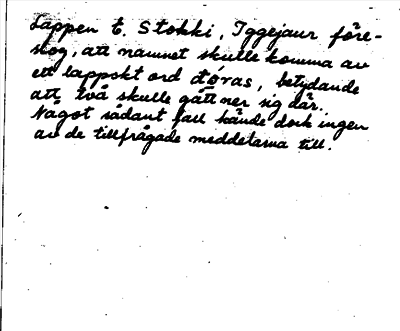 Lappen E. Stokki, Iggejaur före-
skog, att namnet skulle komma av
ett lappskt ord dóras, betydande
att två skulle gått ner sig där.
Något sådant fall kände dock ingen
av de tillfrågade meddelarna till.